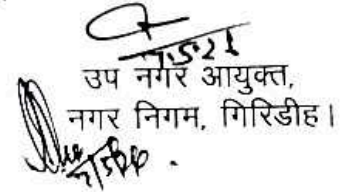 7.5.21
उप नगर आयुक्त,
नगर निगम, गिरिडीह।